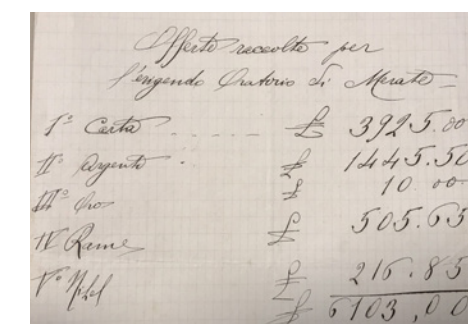 Offerte raccolte per
l'erigendo Oratorio di Merate =
I° Carta ..... £ 3925.00
II° Argento . £ 1445.50
III° Oro £ 10.00
IV Rame £ 505.65
V° Nikel £ 216.85
£ 6103,00